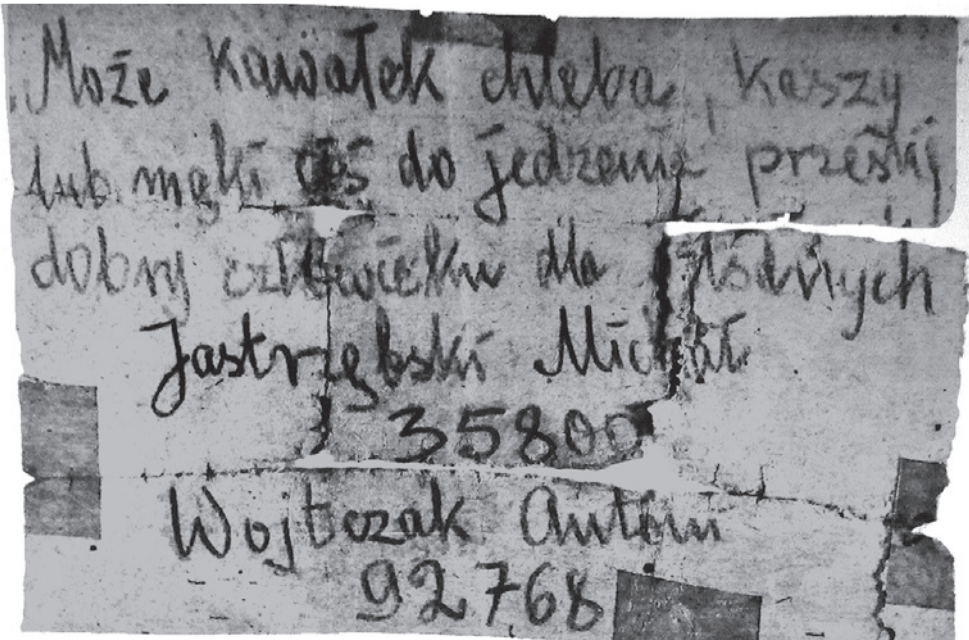 Może kawałek chleba, kaszy
lub mąki coś do jedzenia prześlij
dobry człowieku dla głodnych
Jastrzębski Michał
35800
Wojtczak Antoni
92768